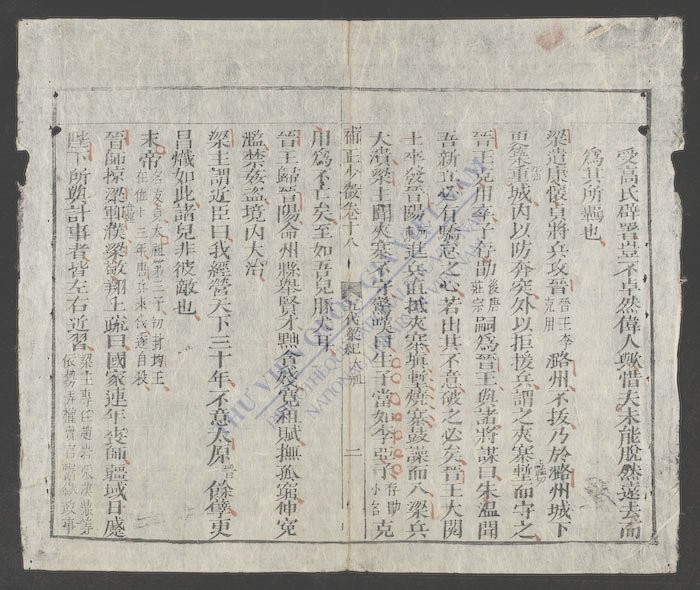 受高氏辟署豈不卓然偉人歟惜夫未能脫然遠去而
爲其所羈也
梁遣康懷貞將兵攻晉晉王李克用潞州不拔乃於潞州城下
更築重城內以防奔突外以拒援兵謂之夾寨塹而守之
晉王克用卒子存勗後唐莊宗嗣爲晉王與諸將謀曰朱溫聞
吾新立必有驕怠之心若出其不意破之必矣晉王大閱
士卒發晉陽進兵直抵夾寨塡塹燒寨鼓譟而入梁兵
大潰梁主聞夾寨不守驚嘆曰生子當如李亞子存勗小名克
補正少微卷十八 五代梁紀太祖 二
用爲不亡矣至如吾兒豚犬耳
晉王歸晉陽命州縣舉賢才黜貪殘寬租賦撫孤窮伸冤
濫禁姦盜境內大治
梁主謂近臣曰我經營天下三十年不意太原晉餘孽更
昌熾如此諸兒非彼敵也
末帝名友貞太祖第三子初封均王在位十三年唐兵來伐遂自殺
晉師掠梁鄆濮梁敬翔上疏曰國家連年喪師疆域日蹙
陛下所與計事者皆左右近習梁主專任趙巖張漢鼎等依勢弄權賣官鬻獄政事
THƯ VIỆN QUỐC GIA VIỆT NAM